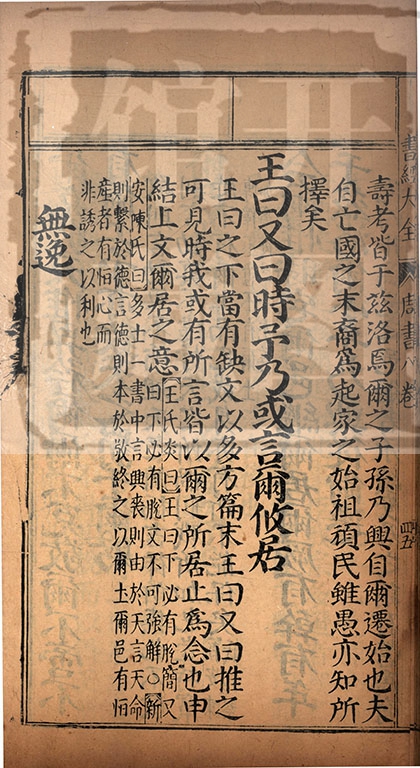 書經大全　周書八卷　四五
壽考皆于玆洛焉爾之子孫乃興自爾遷始也夫
自亡國之末裔爲起家之始祖頑民雖愚亦知所
擇矣
王曰又曰時予乃或言爾攸居
王曰之下當有缺文以多方篇末王曰又曰推之
可見時我或有所言皆以爾之所居止爲念也申
結上文爾居之意
王氏炎曰王曰下必有脫簡又
曰下必有脫文不可強解○新
安陳氏曰多士一書中言興喪則由於天言天命
則繫於德言德則本於敬終之以爾土爾邑有恒
產者有恒心而
非誘之以利也
無逸